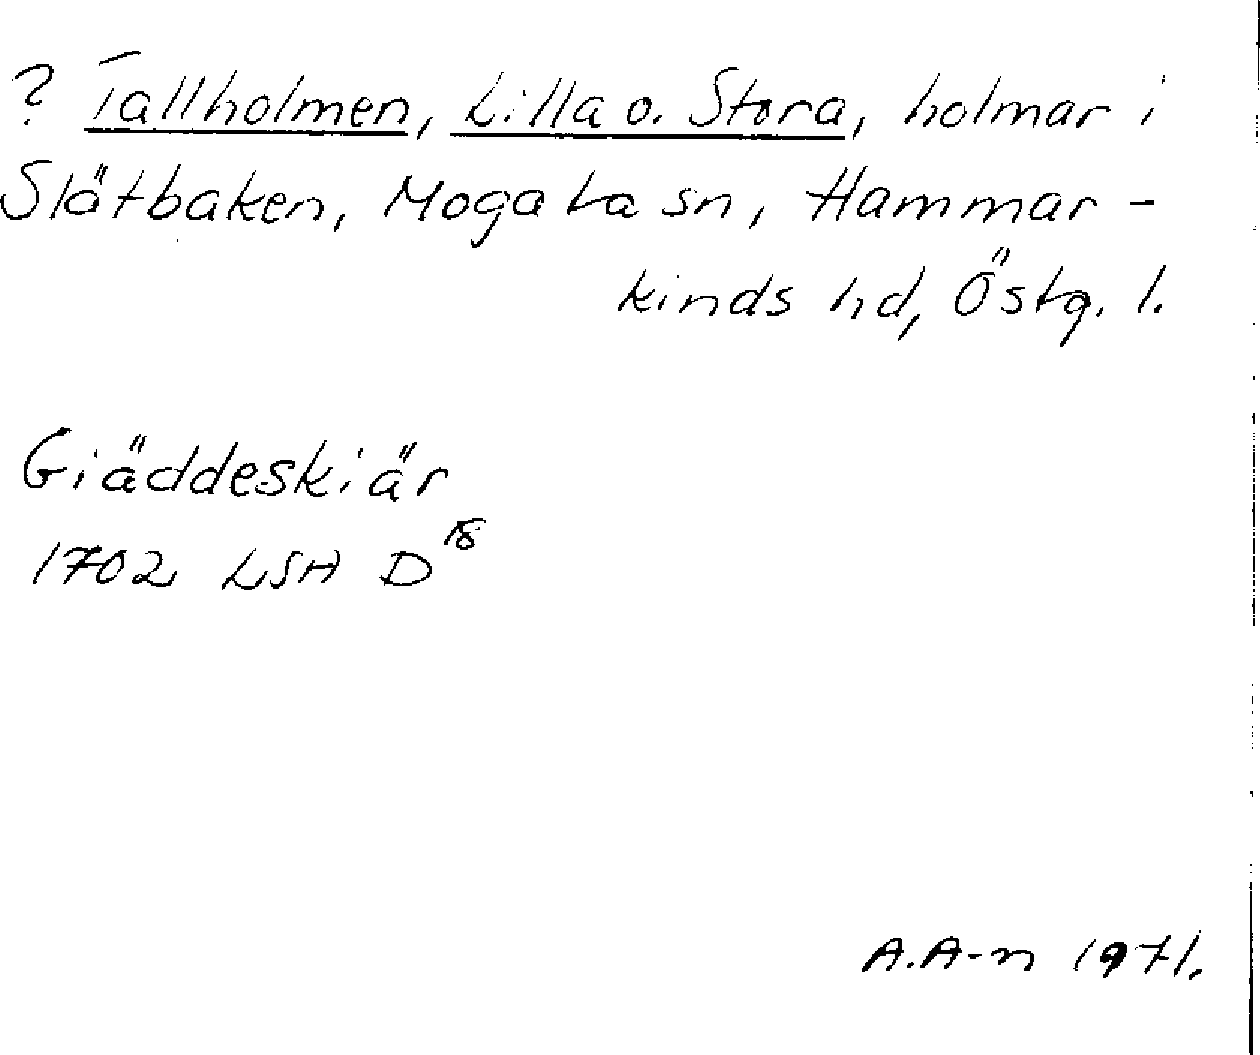 ? Tallholmen, Lilla o. Stora, holmar i
Slätbaken, Mogata sn, Hammar-
kinds hd, Östg. l.
Giäddeskiär
1702 LSA D18
A.A-n 1971.